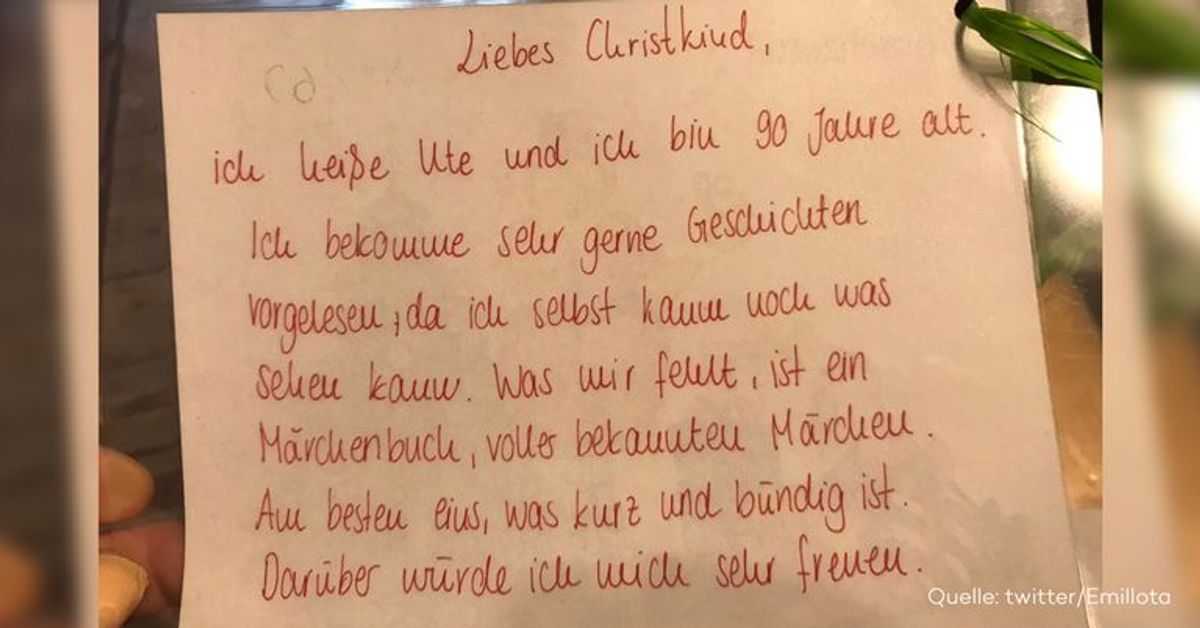 Liebes Christkind,
ich heiße Ute und ich bin 90 Jahre alt.
Ich bekomme sehr gerne Geschichten
vorgelesen, da ich selbst kaum noch was
sehen kann. Was mir fehlt, ist ein
Märchenbuch, voller bekannten Märchen.
Am besten eins, was kurz und bündig ist.
Darüber würde ich mich sehr freuen.
Quelle: twitter/Emillota